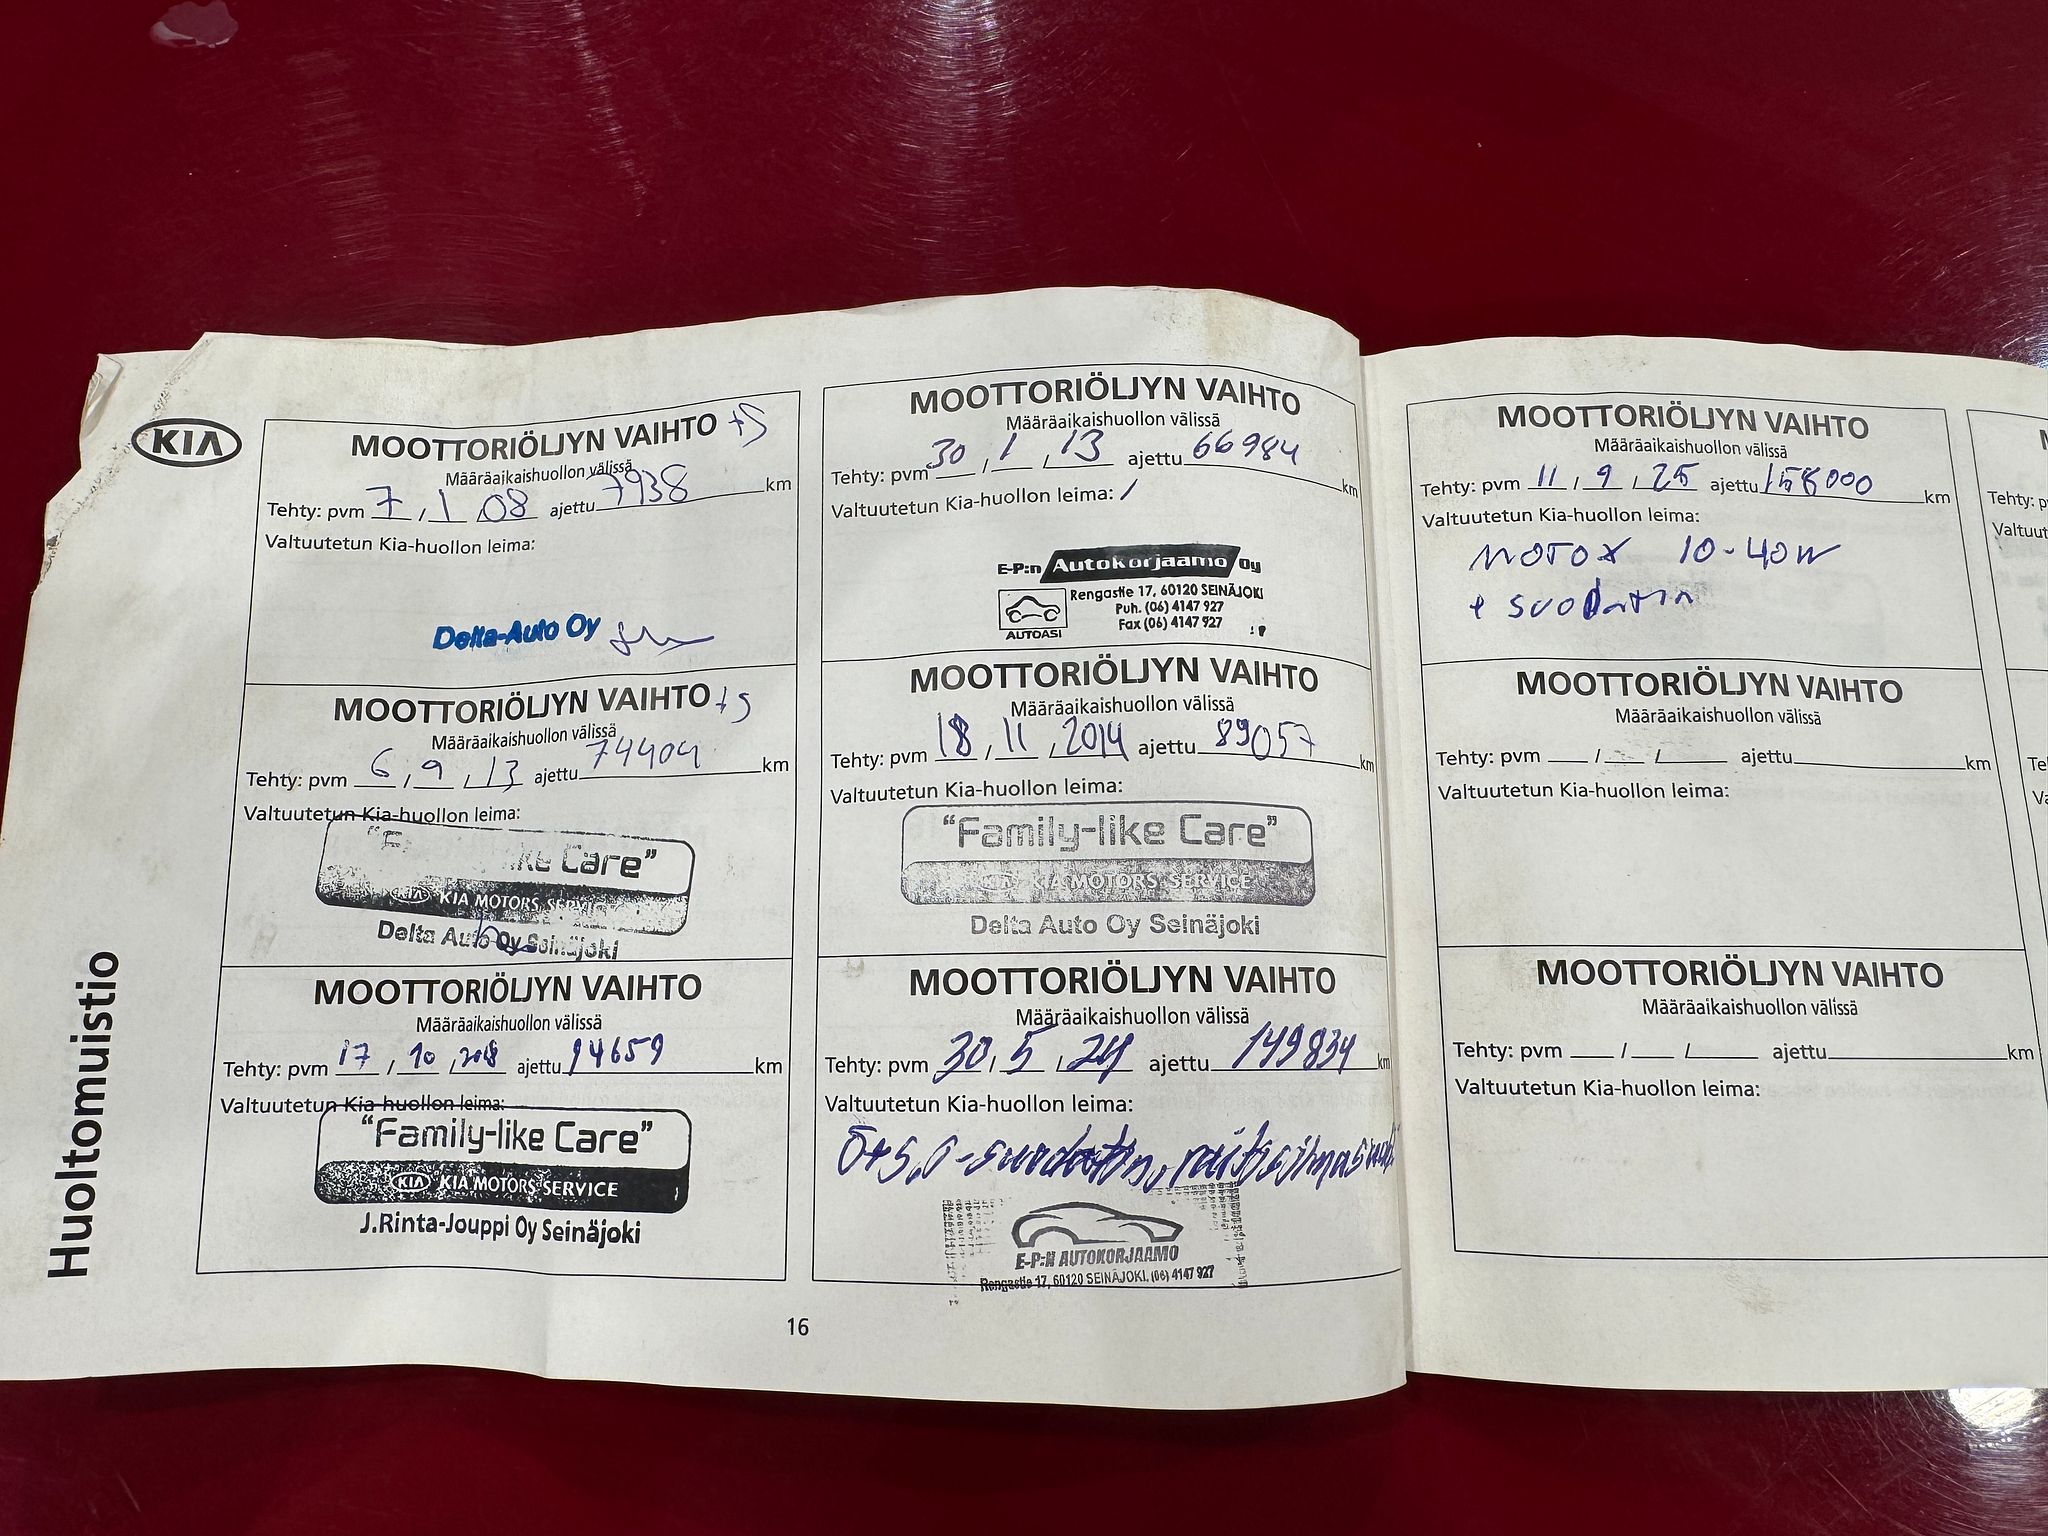 KIA
Huoltomuistio
MOOTTORIÖLJYN VAIHTO +S
Määräaikaishuollon välissä
Tehty: pvm 7 , 1 , 08 ajettu 7938 km
Valtuutetun Kia-huollon leima:
Delta-Auto Oy
MOOTTORIÖLJYN VAIHTO +S
Määräaikaishuollon välissä
Tehty: pvm 6 , 9 , 13 ajettu 74404 km
Valtuutetun Kia-huollon leima:
"F like Care"
KIA KIA MOTORS SERVICE
Delta Auto Oy Seinäjoki
MOOTTORIÖLJYN VAIHTO
Määräaikaishuollon välissä
Tehty: pvm 17 / 10 , 2018 ajettu 94659 km
Valtuutetun Kia-huollon leima:
"Family-like Care"
KIA KIA MOTORS SERVICE
J.Rinta-Jouppi Oy Seinäjoki
MOOTTORIÖLJYN VAIHTO
Määräaikaishuollon välissä
Tehty: pvm 30 / 1 , 13 ajettu 66984 km
Valtuutetun Kia-huollon leima: /
E-P:n Autokorjaamo Oy
Rengastie 17, 60120 SEINÄJOKI
Puh. (06) 4147 927
Fax (06) 4147 927
AUTOASI
MOOTTORIÖLJYN VAIHTO
Määräaikaishuollon välissä
Tehty: pvm 18 , 11 , 2014 ajettu 89057 km
Valtuutetun Kia-huollon leima:
"Family-like Care"
KIA KIA MOTORS SERVICE
Delta Auto Oy Seinäjoki
MOOTTORIÖLJYN VAIHTO
Määräaikaishuollon välissä
Tehty: pvm 30 , 5 , 24 ajettu 149834 km
Valtuutetun Kia-huollon leima:
Ö+S, ö-suodatin,
E-P:N AUTOKORJAAMO
Rengastie 17, 60120 SEINÄJOKI, (06) 4147 927
16
MOOTTORIÖLJYN VAIHTO
Määräaikaishuollon välissä
Tehty: pvm 11 / 9 , 25 ajettu 158000 km
Valtuutetun Kia-huollon leima:
MOTOX 10-40W
+ suodatin
MOOTTORIÖLJYN VAIHTO
Määräaikaishuollon välissä
Tehty: pvm / / ajettu km
Valtuutetun Kia-huollon leima:
MOOTTORIÖLJYN VAIHTO
Määräaikaishuollon välissä
Tehty: pvm / / ajettu km
Valtuutetun Kia-huollon leima: